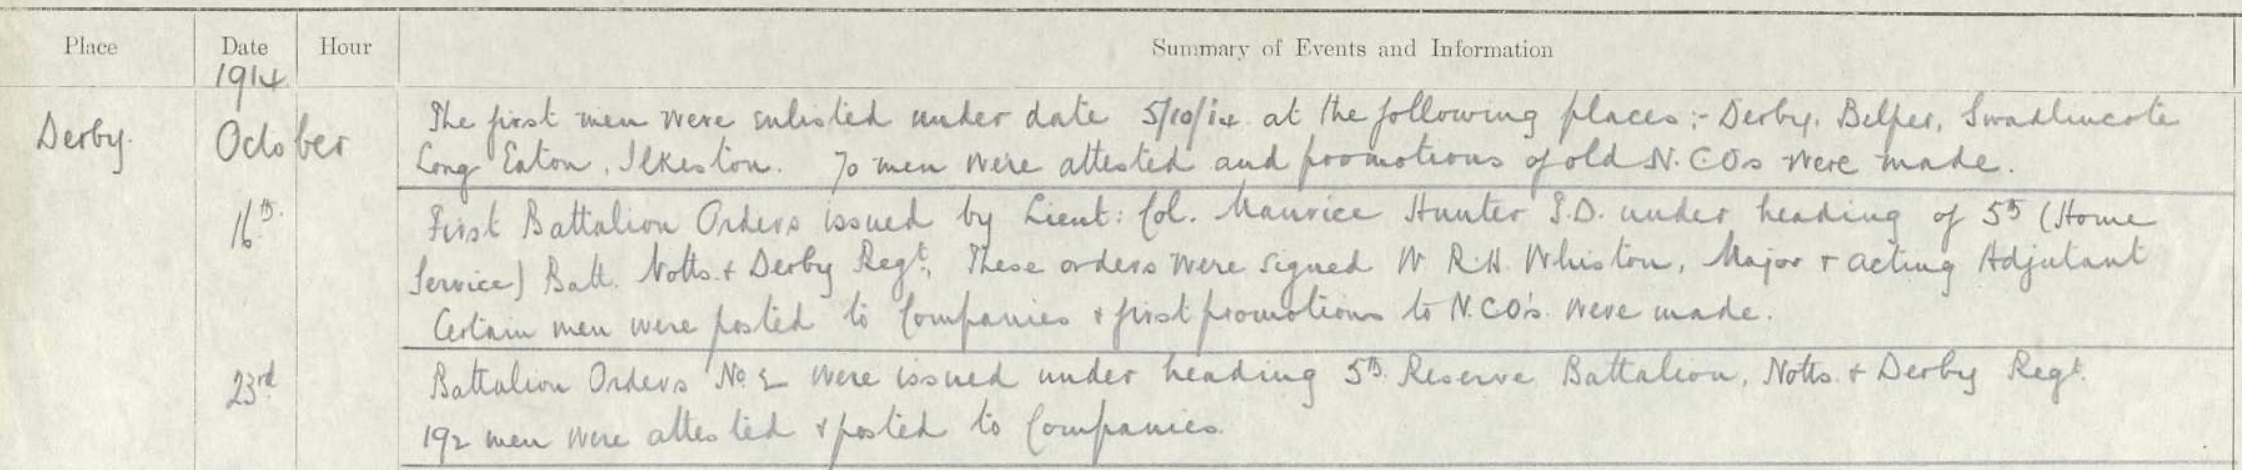 Place Date Hour Summary of Events and Information
1914
Derby. October The first men were enlisted under date 5/10/14 at the following places :- Derby, Belper, Swadlincote
Long Eaton, Ilkeston. 70 men were attested and promotions of old N.C.Os were made.
16th. First Battalion Orders issued by Lieut: Col. Maurice Hunter T.D. under heading of 5th (Home
Service) Batt. Notts. & Derby Regt. These orders were signed W R.H. Whiston, Major & acting Adjutant
Certain men were posted to Companies & first promotions to N.C.O's were made.
23rd Battalion Orders No 2 were issued under heading 5th Reserve Battalion, Notts. & Derby Regt.
192 men were attested & posted to Companies.